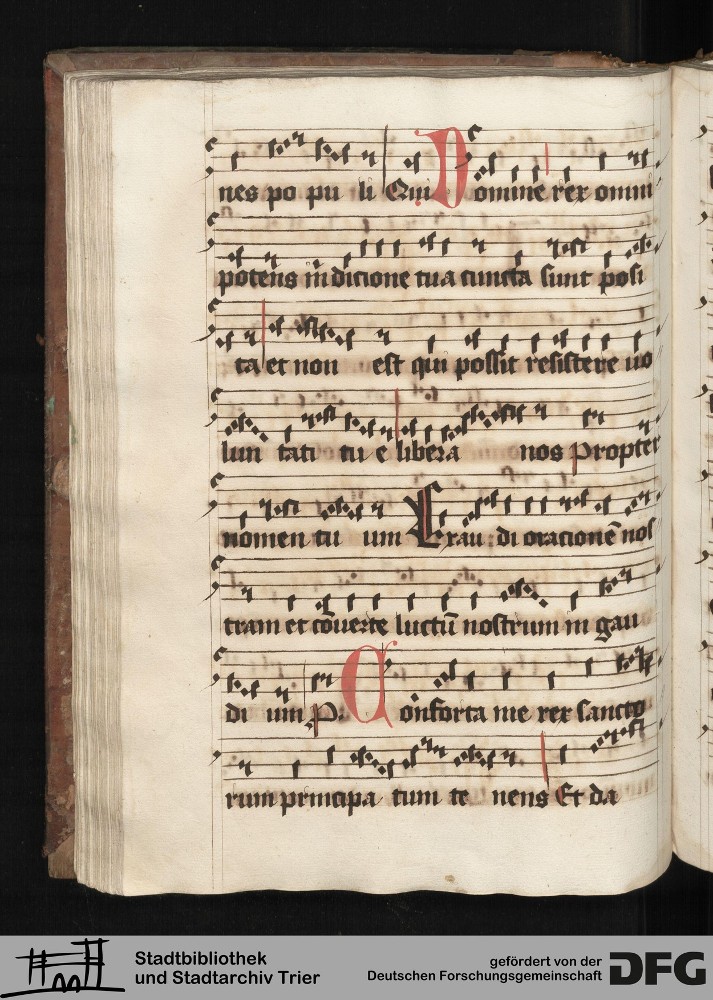 nes po pu li Qui Domine rex omni
potens in dicione tua cuncta sunt posi
ta et non est qui possit resistere uo
lun tati tu e libera nos Propter
nomen tu um Exau di oracionē nos
tram et cōuerte luctū nostrum in gau
di um P. Conforta me rex sancto
rum principa tum te nens Et da
Stadtbibliothek
und Stadtarchiv Trier
gefördert von der
Deutschen Forschungsgemeinschaft
DFG